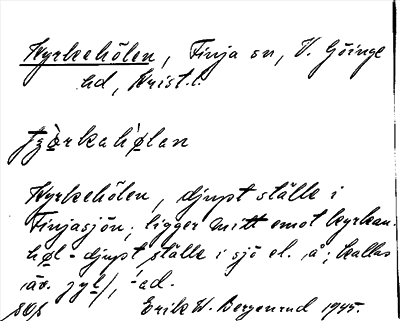 Kyrkehölen, Finja sn, V. Göinge
hd, Krist. l.
Kyrkehölen, djupt ställe i
Finjasjön; ligger mitt emot kyrkan.
høl - djupt ställe i sjö el. å; kallas
äv. , -ad.
Erik W. Bergenrud 1945.